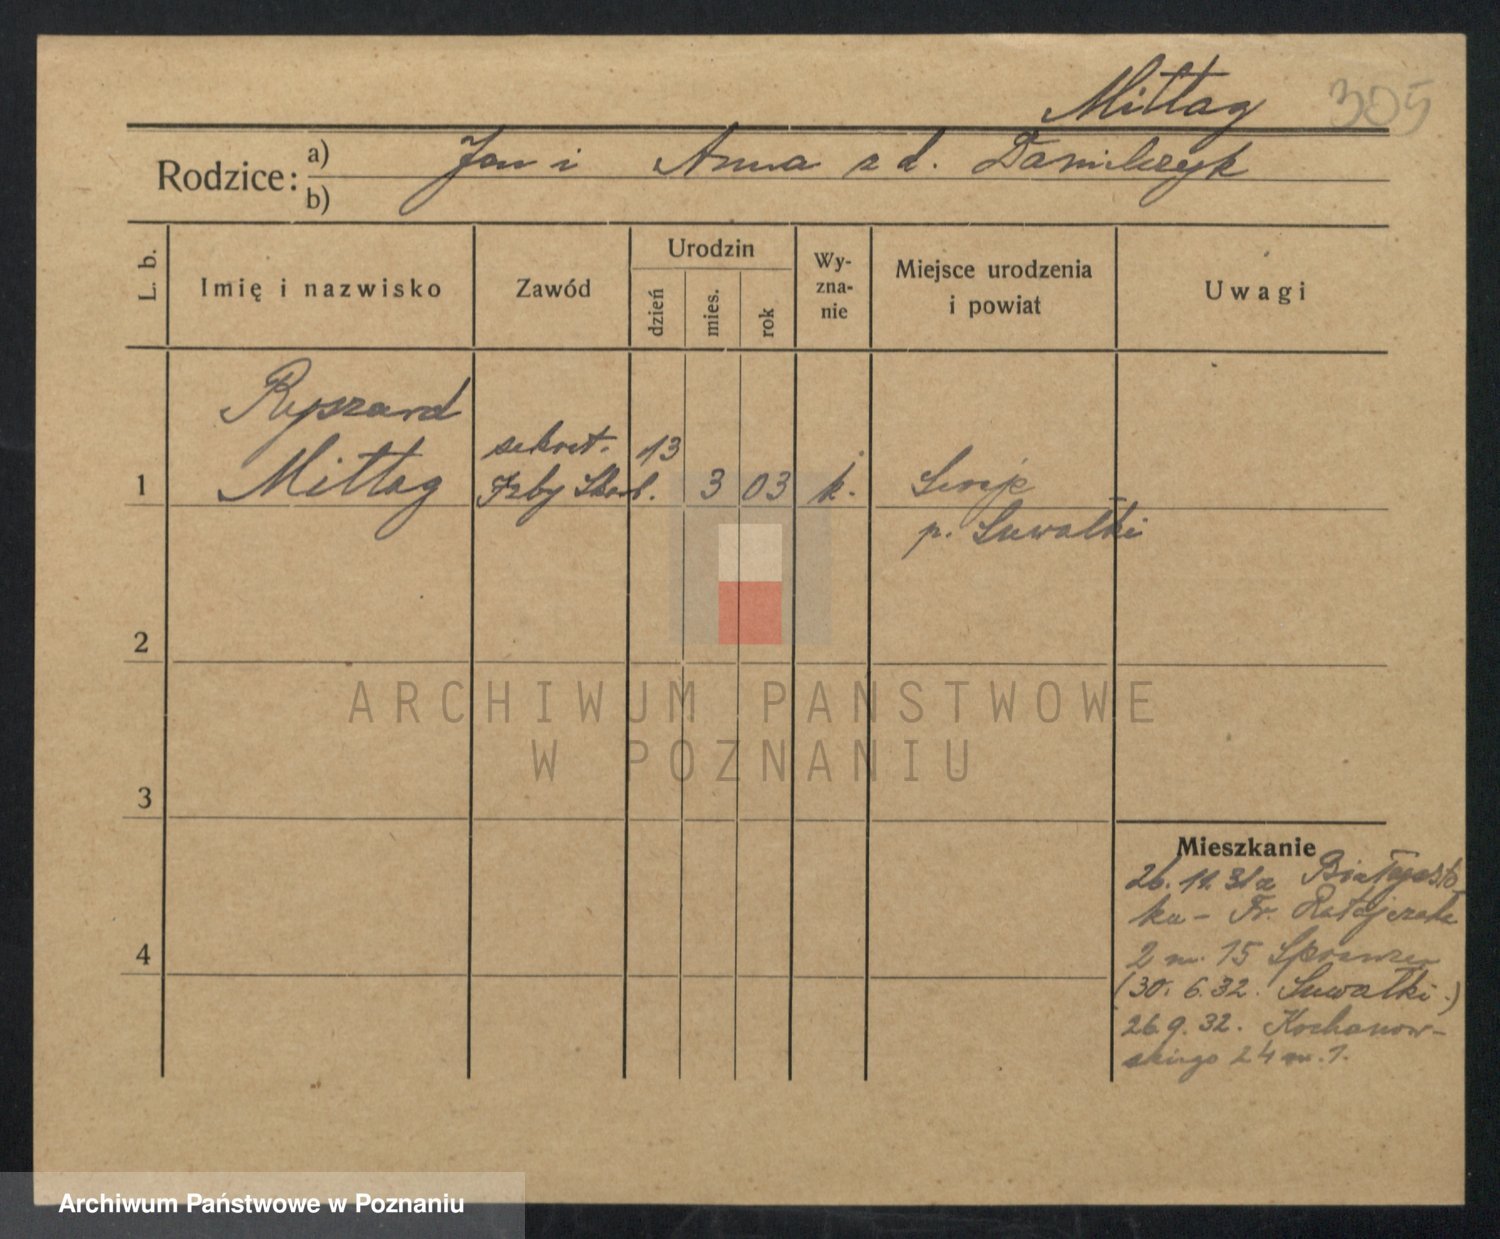 Mittag 305
Rodzice: a) Jan i Anna z d. Danilczyk
b)
L. b.
Imię i nazwisko
Zawód
Urodzin
dzień
mies.
rok
Wy-
zna-
nie
Miejsce urodzenia
i powiat
Uwagi
Ryszard
Mittag
sekret. 13
1 Izby Skarb. 3 03 k.
p. Suwałki
2
ARCHIWUM PAŃSTWOWE
W POZNANIU
3
Mieszkanie
26. 11. 31 z Białegosto
ku - Fr. Ratajczaka
4
2 m. 15
(30. 6. 32. Suwałki.)
26 9. 32. Kochanow-
skiego 24 m. 1.
Archiwum Państwowe w Poznaniu